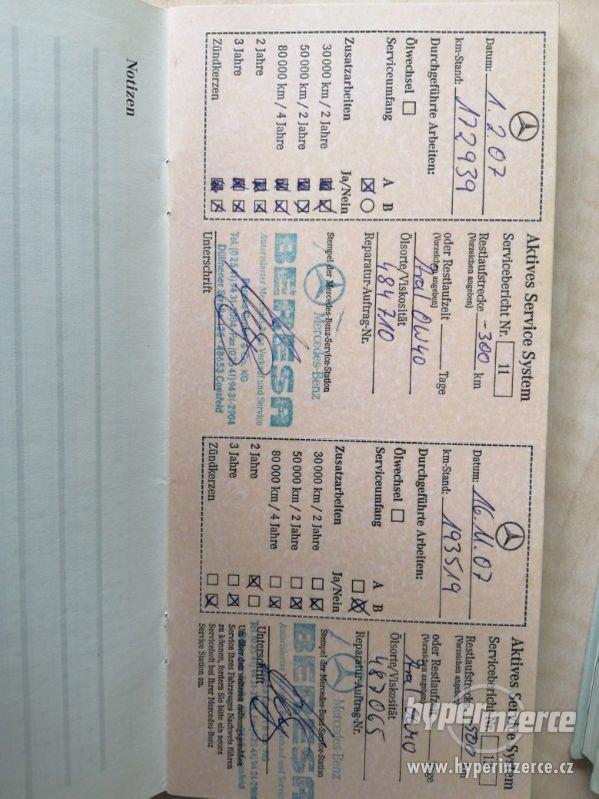 Notizen
Aktives Service System
Servicebericht Nr. 11
Datum: 1.2.07
km-Stand: 172939
Restlaufstrecke -300 km
(Vorzeichen angeben)
oder Restlaufzeit Tage
(Vorzeichen angeben)
Durchgeführte Arbeiten:
Ölwechsel
Ölsorte/Viskosität
Aral 0W40
Serviceumfang A B
Reparatur-Auftrag-Nr.
484710
Zusatzarbeiten Ja/Nein
30 000 km / 2 Jahre
50 000 km / 2 Jahre
80 000 km / 4 Jahre
2 Jahre
3 Jahre
Zündkerzen
Stempel der Mercedes-Benz-Service-Station
Mercedes-Benz
BERESA
Autorisierter Mercedes-Benz Verkauf und Service
KG
48653 Coesfeld
Unterschrift
Aktives Service System
Servicebericht
Datum: 16.11.07
km-Stand: 193519
Restlaufstrecke
(Vorzeichen angeben)
oder Restlaufzeit
Durchgeführte Arbeiten:
Ölwechsel
Ölsorte/Viskosität
Aral 0W40
Serviceumfang A B
Reparatur-Auftrag-Nr.
487065
Zusatzarbeiten Ja/Nein
30 000 km / 2 Jahre
50 000 km / 2 Jahre
80 000 km / 4 Jahre
2 Jahre
3 Jahre
Zündkerzen
Stempel der Mercedes-Benz-Service-Station
Mercedes-Benz
BERESA
Unterschrift
Um über den
Service Ihres Fahrzeuges Nachweis führen
zu können, fordern Sie bitte ein neues
Serviceheft bei Ihrer Mercedes-Benz
Service Station an.
hyperinzerce
www.hyperinzerce.cz